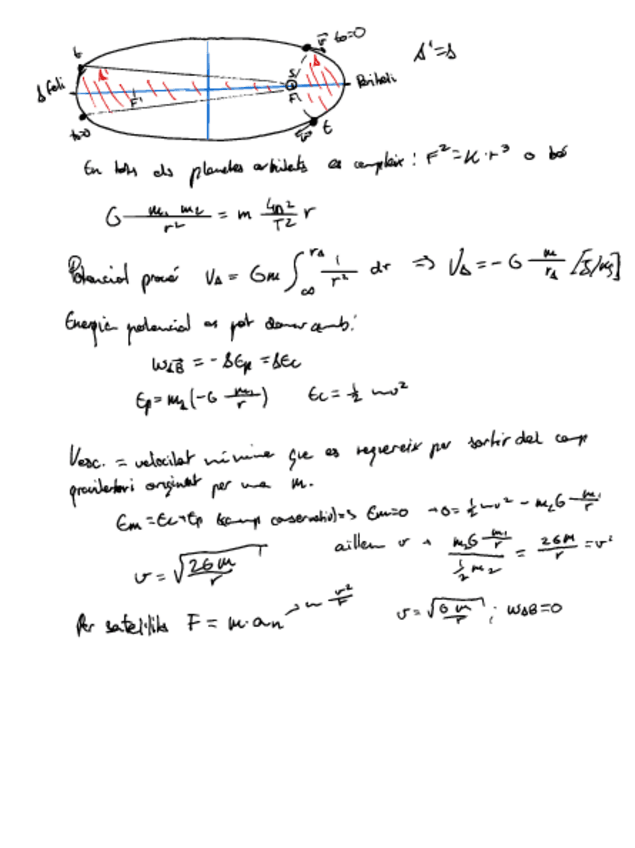 t
v⃗ t₀=0
A'=A
Afeli
A'
S
A
Periheli
F'
F
t₀=0
v⃗
t
En tots els planetes orbitants es compleix: F²=K·r³ o bé
G m₁ m₂ / r² = m 4π² / T² r
Potencial V_A = Gm ∫_∞^{r_A} 1/r² dr ⇒ V_A = -G m/r_A [J/kg]
Energia potencial es pot donar amb:
W_{AB} = -ΔEp = ΔEc
Ep = m₂ (-G m₁/r) Ec = ½ mv²
Vesc. = velocitat mínima que es requereix per sortir del camp
gravitatori originat per una m.
Em = Ec+Ep (camp conservatiu) => Em=0 → 0 = ½ mv² - m₂G m₁/r
v = √(2Gm/r) aïllem v → (m₂G m₁/r) / (½ m₂) = 2Gm/r = v²
Per satèl·lits F = m·an → m v²/r v = √(G m/r) ; W_{AB}=0